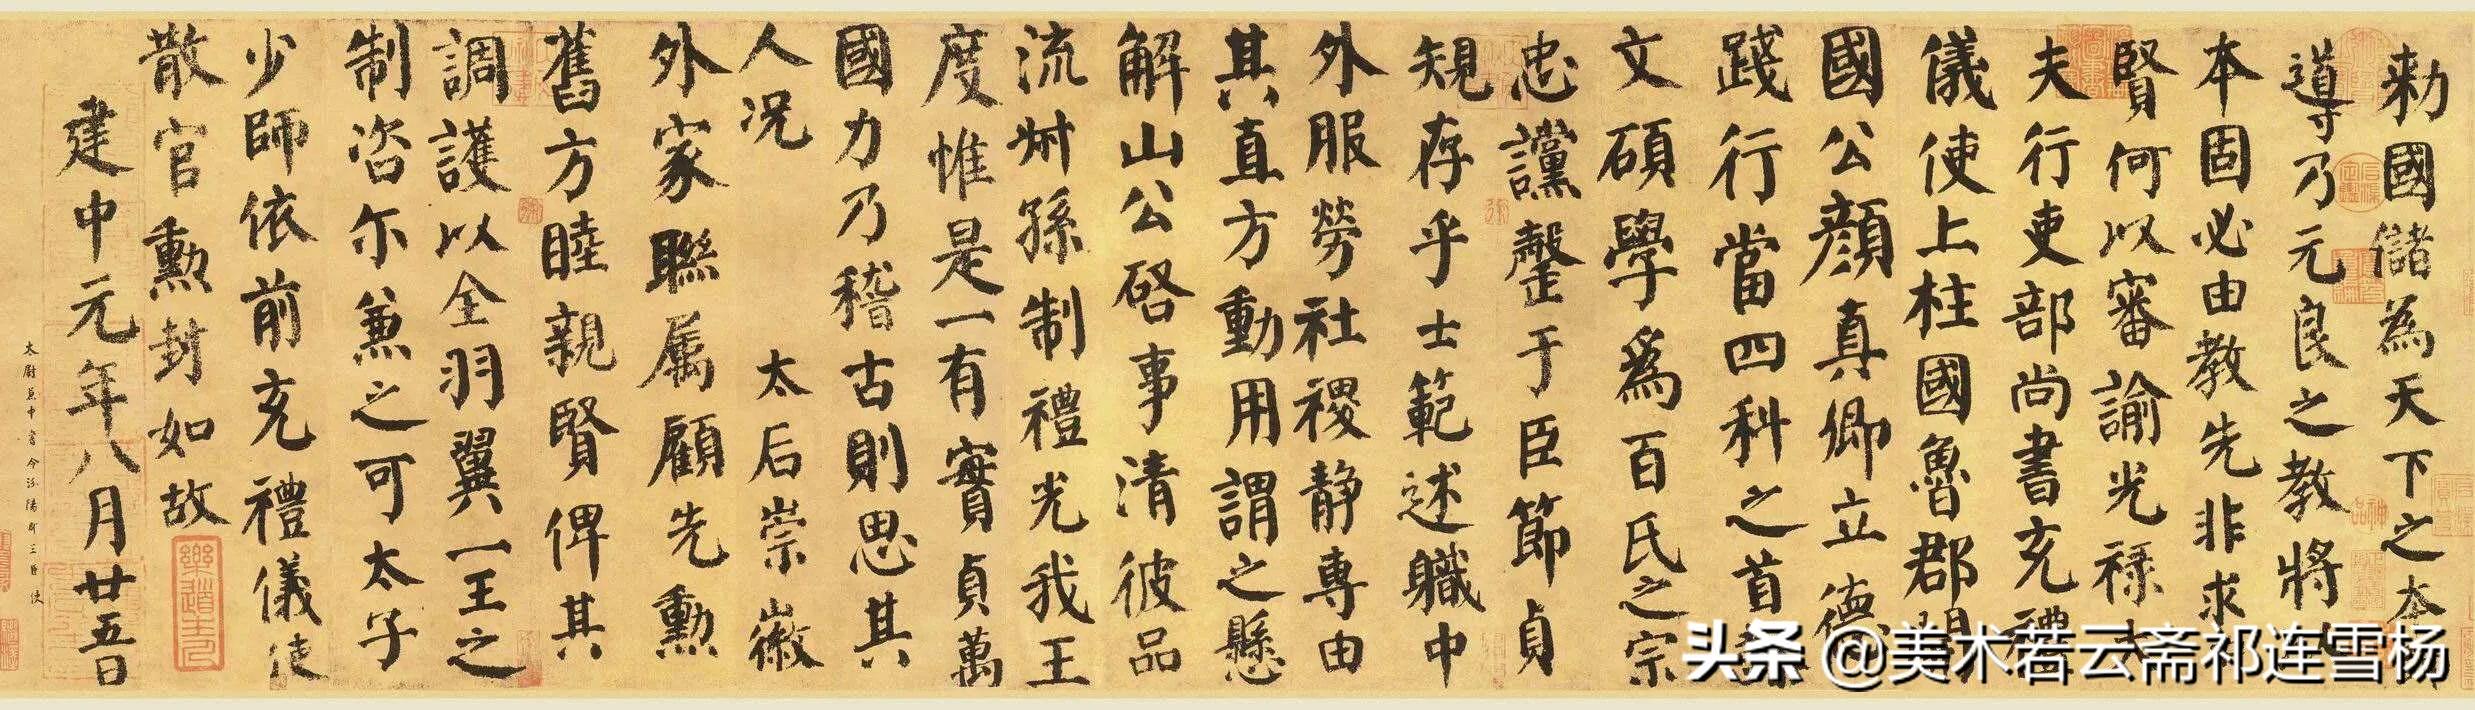 勅國儲為天下之本師
導乃元良之教將以
本固必由教先非求
賢何以審諭光禄大
夫行吏部尚書充禮
儀使上柱國魯郡開
國公顔真卿立德
踐行當四科之首懿
文碩學爲百氏之宗
忠讜罄于臣節貞
規存乎士範述職中
外服勞社稷静專由
其直方動用謂之懸
解山公啓事清彼品
流叔孫制禮光我王
度惟是一有實貞萬
國力乃稽古則思其
人况 太后崇徽
外家聯属顧先勲
舊方睦親賢俾其
調護以全羽翼一王之
制咨尔兼之可太子
少師依前充禮儀使
散官勲封如故
建中元年八月廿五日
太尉 中書令汾陽郡王 使
樂道主人
头条 @美术若云斋祁连雪杨